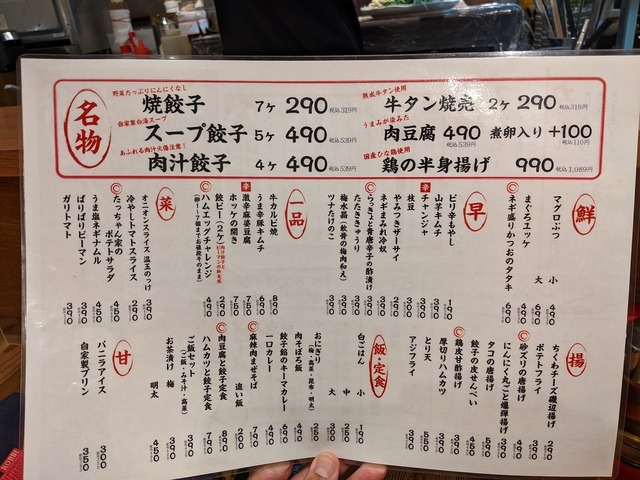 名物
野菜たっぷりにんにくなし
焼餃子 7ヶ 290 税込319円
自家製白湯スープ
スープ餃子 5ヶ 490 税込539円
あふれる肉汁火傷注意!
肉汁餃子 4ヶ 490 税込539円
熟成牛タン使用
牛タン焼売 2ヶ 290 税込319円
うまみが染みた
肉豆腐 490 税込539円 煮卵入り +100 税込110円
国産ひな鶏使用
鶏の半身揚げ 990 税込1,089円
鮮
マグロぶつ 小 490
大 690
まぐろユッケ 490
ネギ盛りかつおのタタキ 690
早
ピリ辛もやし 190
山芋キムチ 390
辛 チャンジャ 390
枝豆 390
やみつきザーサイ 290
ネギまみれ冷奴 390
らっきょと青唐辛子の酢漬け 390
たたききゅうり 390
梅水晶(軟骨の梅肉和え) 390
ツナたけのこ 390
一品
牛カルビ焼 890
うま辛豚キムチ 690
辛 激辛麻婆豆腐 750
ホッケの開き 750
餃ピー(2ヶ) 290
ハムエッグチャレンジ 490
菜
オニオンスライス 温玉のっけ 390
冷やしトマトスライス 290
たっちゃん家のポテトサラダ 450
うま塩ネギナムル 390
ぱりぱりピーマン 390
ガリトマト 390
揚
ちくわチーズ磯辺揚げ 290
ポテトフライ 390
砂ズリの唐揚げ 490
にんにく丸ごと爆弾揚げ 390
タコの唐揚げ 590
餃子の皮せんべい 450
鶏皮甘酢揚げ 390
厚切りハムカツ 490
とり天 550
アジフライ 390
飯・定食
白ごはん 小 190
中 250
大 300
おにぎり(梅・高菜・昆布・明太) 250
肉そぼろ飯 490
餃子餡のキーマカレー 690
一口カレー 490
麻辣肉まぜそば 790
追い飯 200
肉豆腐と餃子定食 890
ハムカツと餃子定食 790
ご飯セット(ご飯・みそ汁・高菜) 390
お茶漬け 梅 390
明太 450
甘
バニラアイス 300
自家製プリン 350